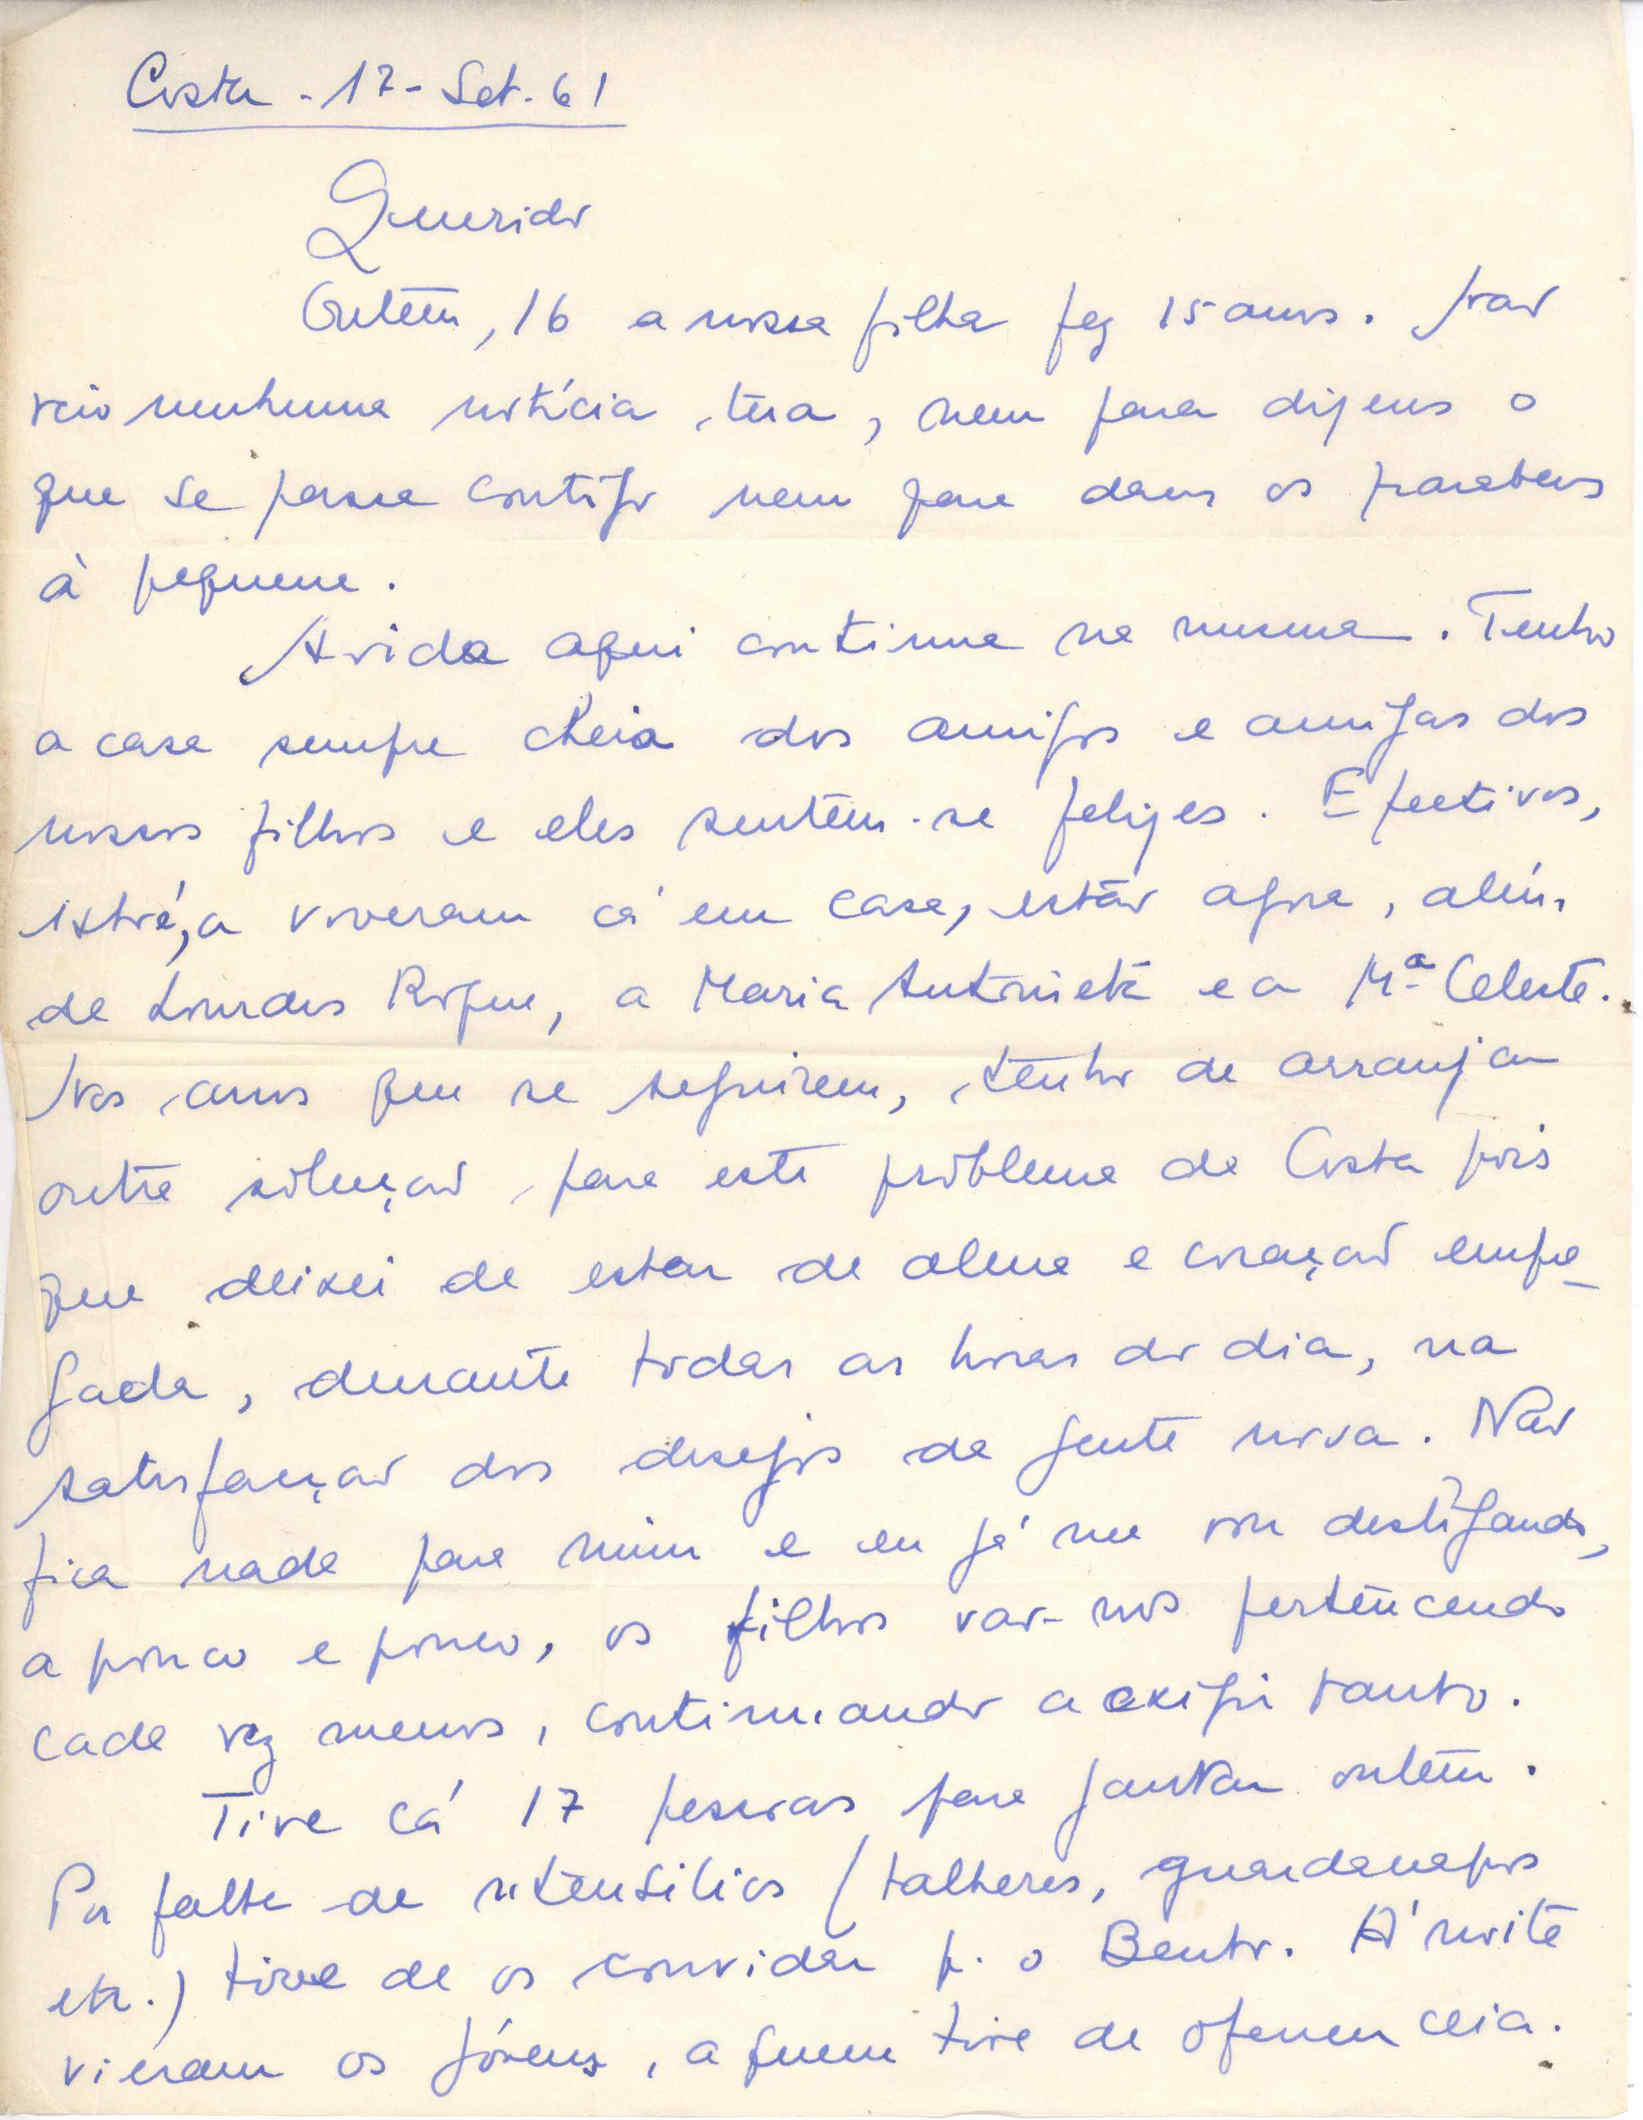 Costa - 17 - Set. 61
Querido
Ontem, 16 a nossa filha fez 15 anos. Não
veio nenhuma notícia tua, nem para dizeres o
que se passa contigo nem para dares os parabens
à pequena.
A vida aqui continua na mesma. Tenho
a casa sempre cheia dos amigos e amigas dos
nossos filhos e eles sentem-se felizes. Efectivos,
isto é, a viverem cá em casa, estão agora, além
de Lourdes Roque, a Maria Antonieta e a Mª Celeste.
Nos anos que se seguirem, tenho de arranjar
outra solução para este problema da Costa pois
que deixei de estar de alma e coração empe-
gada, durante todas as horas do dia, na
satisfação dos desejos da gente nova. Não
fica nada para mim e eu já me vou desligando,
a pouco e pouco, os filhos vão-nos pertencendo
cada vez menos, continuando a exigir tanto.
Tive cá 17 pessoas para jantar ontem.
Por falta de utensílios (talheres, guardanapos
etc.) tive de os convidar p. o Bento. À noite
vieram os jóvens, a quem tive de oferecer ceia.